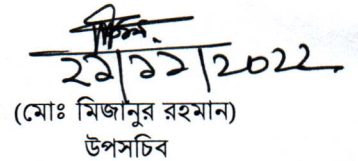 ২১|১১|2022
(মোঃ মিজানুর রহমান)
উপসচিব